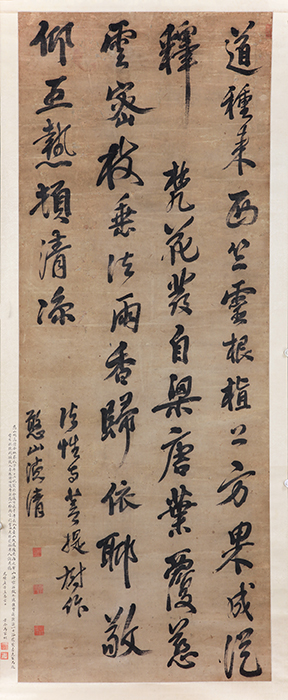 道種来西竺靈根植上方果成從
釋梵花發自梁唐葉覆慈
雲密枝垂法雨香歸依聊敬
仰五熱頓清涼
法性寺菩提樹作
憨山德清